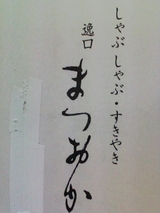 しゃぶしゃぶ・すきやき
逸口
まつおか